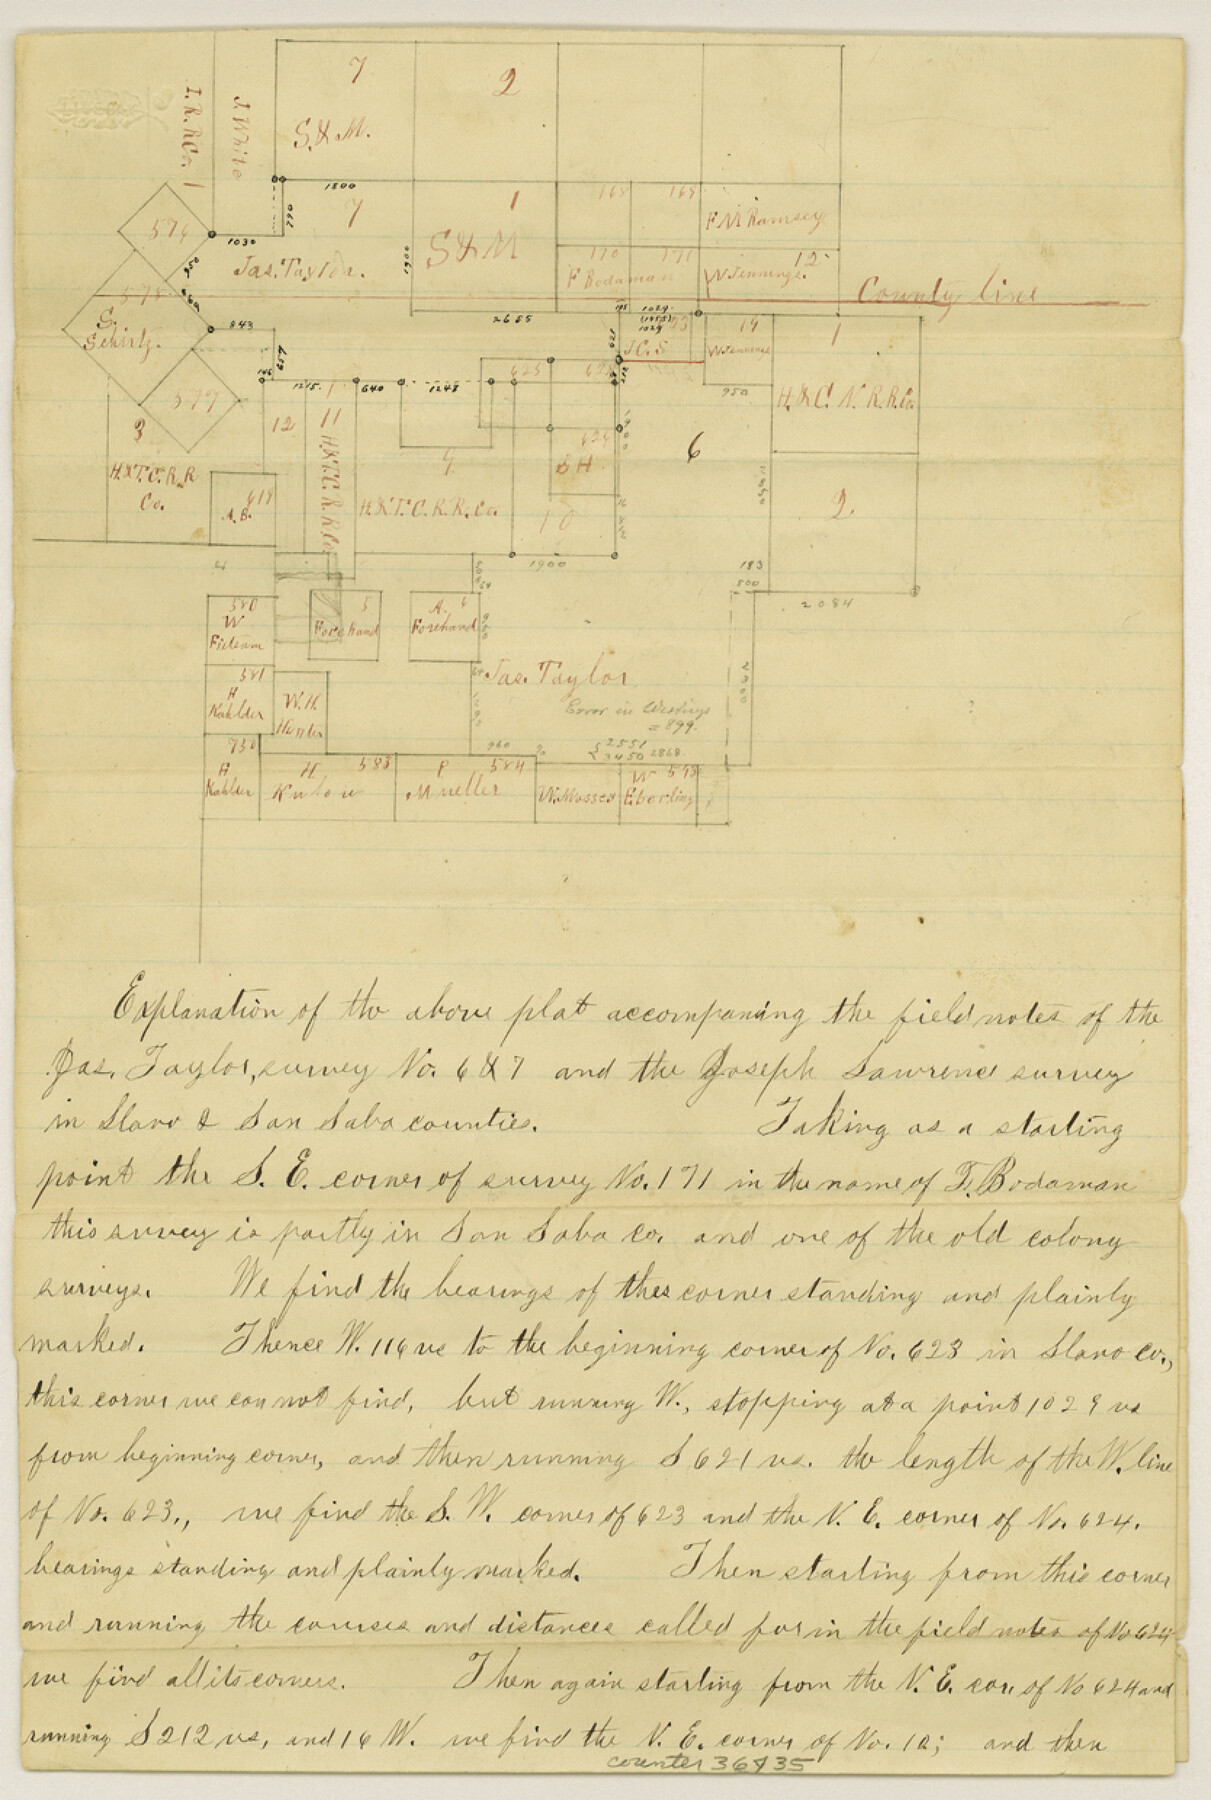 I. R. R Co. 1
J. White
7
S. & M.
2
1800
790
7
Jas. Taylor.
1030
576
1
S & M
1900
168
169
F M Ramsey
170
171
F Bodaman
W Jennings.
12
County line
350
578
S.
Schirtz.
843
657
2655
195
1029
(1455)
1029
621
J C. S
14
W Jennings
950
1
H. & C. N. R. R. Co.
146
1215.
640
1248
625
577
3
H. & T. C. R. R
Co.
12
11
H. & T. C. R. R Co
9
H. & T. C. R. R. Co.
624
B H
10
6
2.
618
A. B.
4
1900
183
500
2084
580
W
Fielsam
5
Forehand
A. 6
Forehand
950
581
H
Kahlder
W. H.
Hunter
Jas. Taylor
Error in Westings
= 899.
2551
3450 2868
960
750
H
Kahlder
H 583
Kulow
P 584
Mueller
W. Mosses
W 593
Eberling
Explanation of the above plat accompaning the field notes of the
Jas. Taylor, survey No. 6 & 7 and the Joseph Lawrence survey
in Llano & San Saba counties. Taking as a starting
point the S. E. corner of survey No. 171 in the name of F. Bodaman
this survey is partly in San Saba co. and one of the old colony
surveys. We find the bearings of thes corner standing and plainly
marked. Thence W. 116 vs to the beginning corner of No. 623 in Llano co.,
this corner we can not find, but running W., stopping at a point 1029 vs
from beginning corner, and then running S 621 vs. the length of the W. line
of No. 623., we find the S. W. corner of 623 and the N. E. corner of No. 624.
bearings standing and plainly marked. Then starting from this corner
and running the courses and distances called for in the field notes of No 624
we find all its corners. Then again starting from the N. E. cor. of No 624 and
running S 212 vs, and 16 W. we find the N. E. corner of No. 10; and then
counter 36435